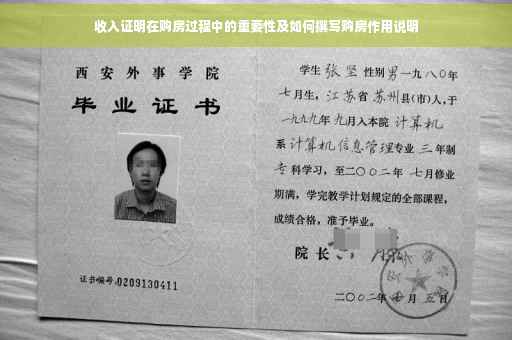 收入证明在购房过程中的重要性及如何撰写购房作用说明
西安外事学院
毕业证书
证书编号:0209130411
学生 张坚 性别 男 一九八〇年
七月生，江苏省 苏州县(市)人，于
一九九九年 九月入本院 计算机
系 计算机信息管理专业 三 年制
专 科学习，至二〇〇二年 七月修业
期满，学完教学计划规定的全部课程，
成绩合格，准予毕业。
院长
二〇〇二年 月 五日